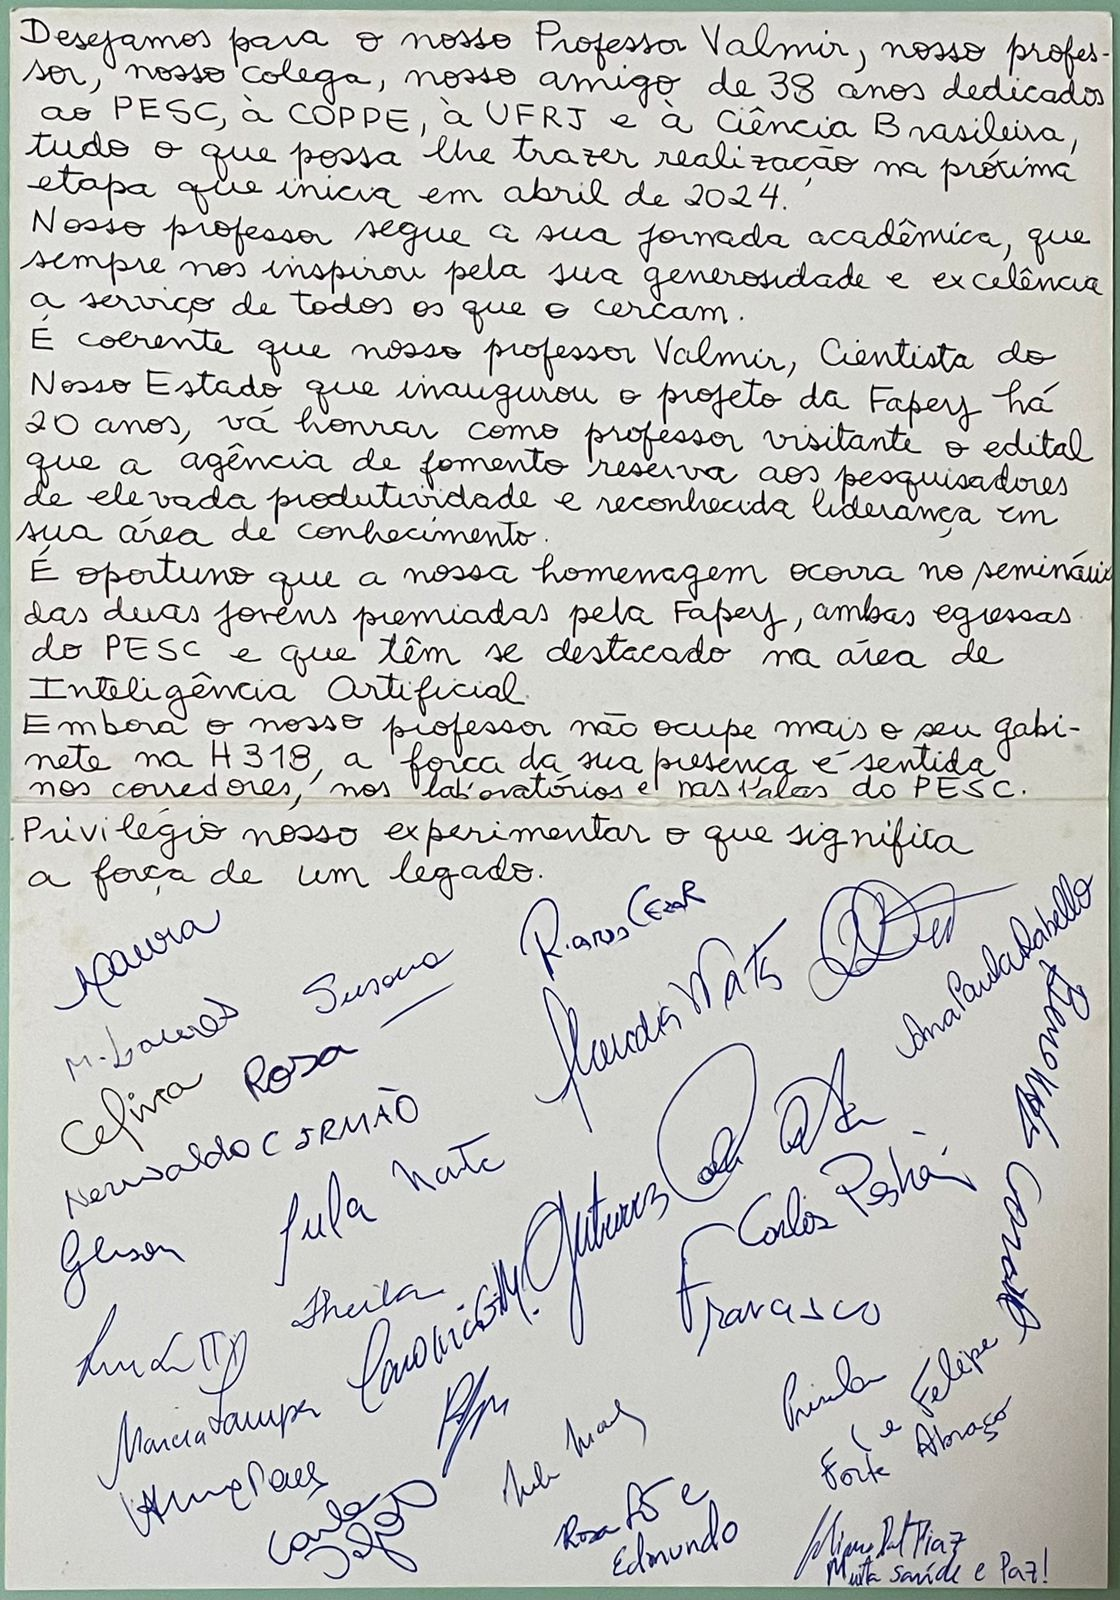 Desejamos para o nosso Professor Valmir, nosso profes-
sor, nosso colega, nosso amigo de 38 anos dedicados
ao PESC, à COPPE, à UFRJ e à Ciência Brasileira,
tudo o que possa lhe trazer realização na próxima
etapa que inicia em abril de 2024.
Nosso professor segue a sua jornada acadêmica, que
sempre nos inspirou pela sua generosidade e excelência
a serviço de todos os que o cercam.
É coerente que nosso professor Valmir, Cientista do
Nosso Estado que inaugurou o projeto da Faperj há
20 anos, vá honrar como professor visitante o edital
que a agência de fomento reserva aos pesquisadores
de elevada produtividade e reconhecida liderança em
sua área de conhecimento.
É oportuno que a nossa homenagem ocorra no seminário
das duas jovens premiadas pela Faperj, ambas egressas
do PESC e que têm se destacado na área de
Inteligência Artificial.
Embora o nosso professor não ocupe mais o seu gabi-
nete na H318, a força da sua presença é sentida
nos corredores, nos laboratórios e nas salas do PESC.
Privilégio nosso experimentar o que significa
a força de um legado.
Maura
Ricardo Cezar
Susana
Ana Paula Rabello
Rosa
IRMÃO
Gutierrez
Carlos
Sheila
Francisco
Marcia
Priscila
e Felipe
Forte Abraço
Carla
Rosa e
Edmundo
Muita saúde e Paz!